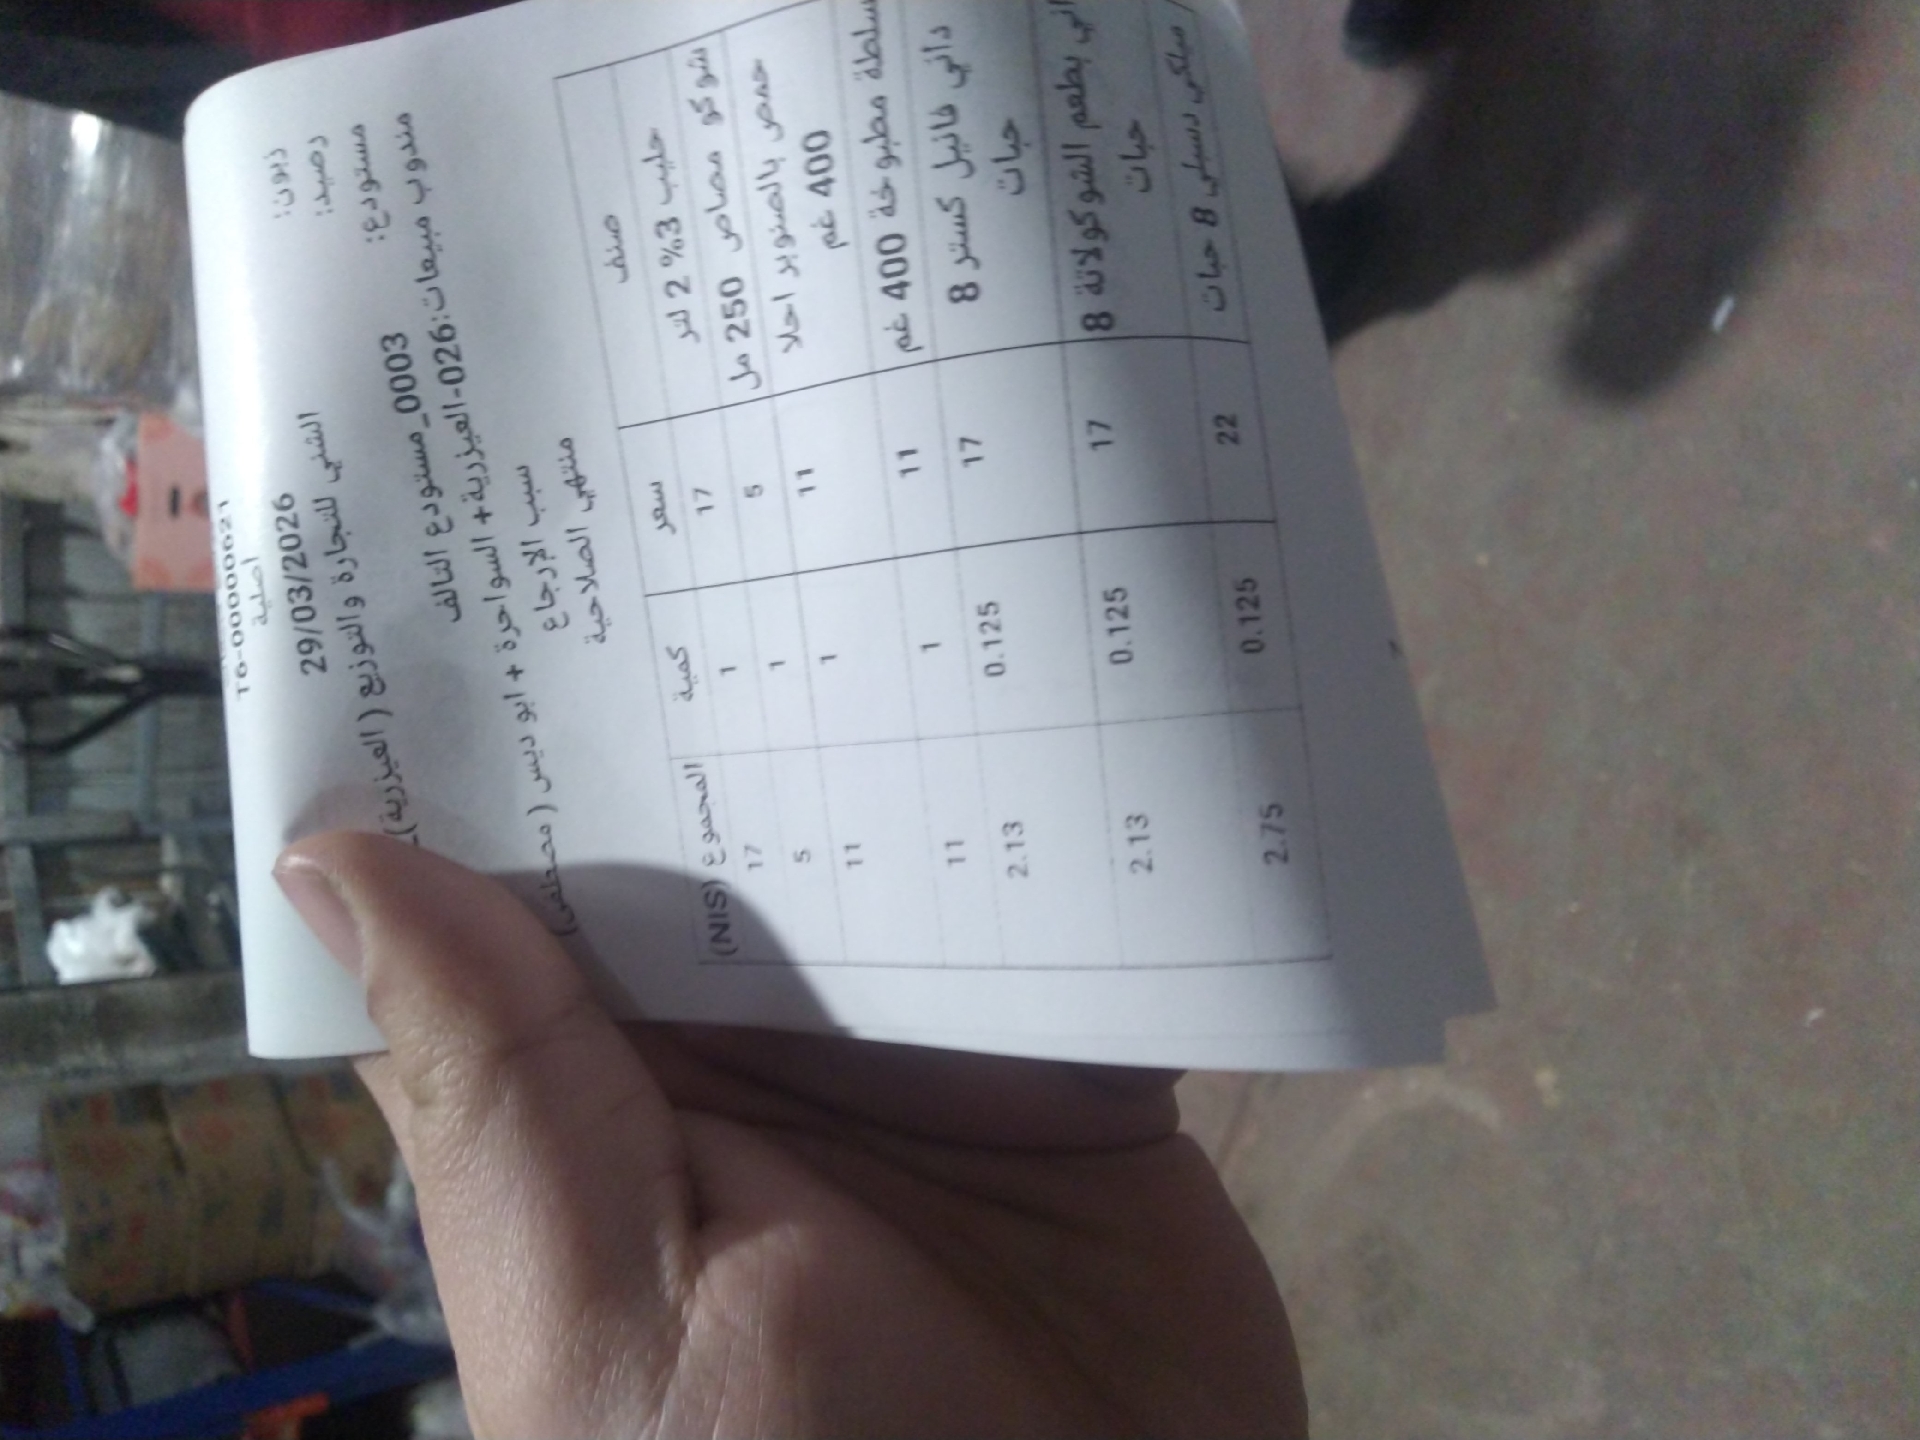 TG-00000621
اصلية
29/03/2026
زبون: الشني للتجارة والتوزيع ( العيزرية)-
رصيد:
مستودع: 0003_مستودع التالف
مندوب مبيعات:026-العيزرية+ السواحرة + ابو ديس ( مصطفى)
سبب الإرجاع
منتهي الصلاحية
صنف سعر كمية المجموع (NIS)
حليب 3% 2 لتر 17 1 17
شوكو مصاص 250 مل 5 1 5
حمص بالصنوبر احلا 11 1 11
400 غم
سلطة مطبوخة 400 غم 11 1 11
داني فانيل كستر 8 17 0.125 2.13
حبات
بطعم الشوكولاتة 8 17 0.125 2.13
حبات
ميلكي دسبلي 8 حبات 22 0.125 2.75